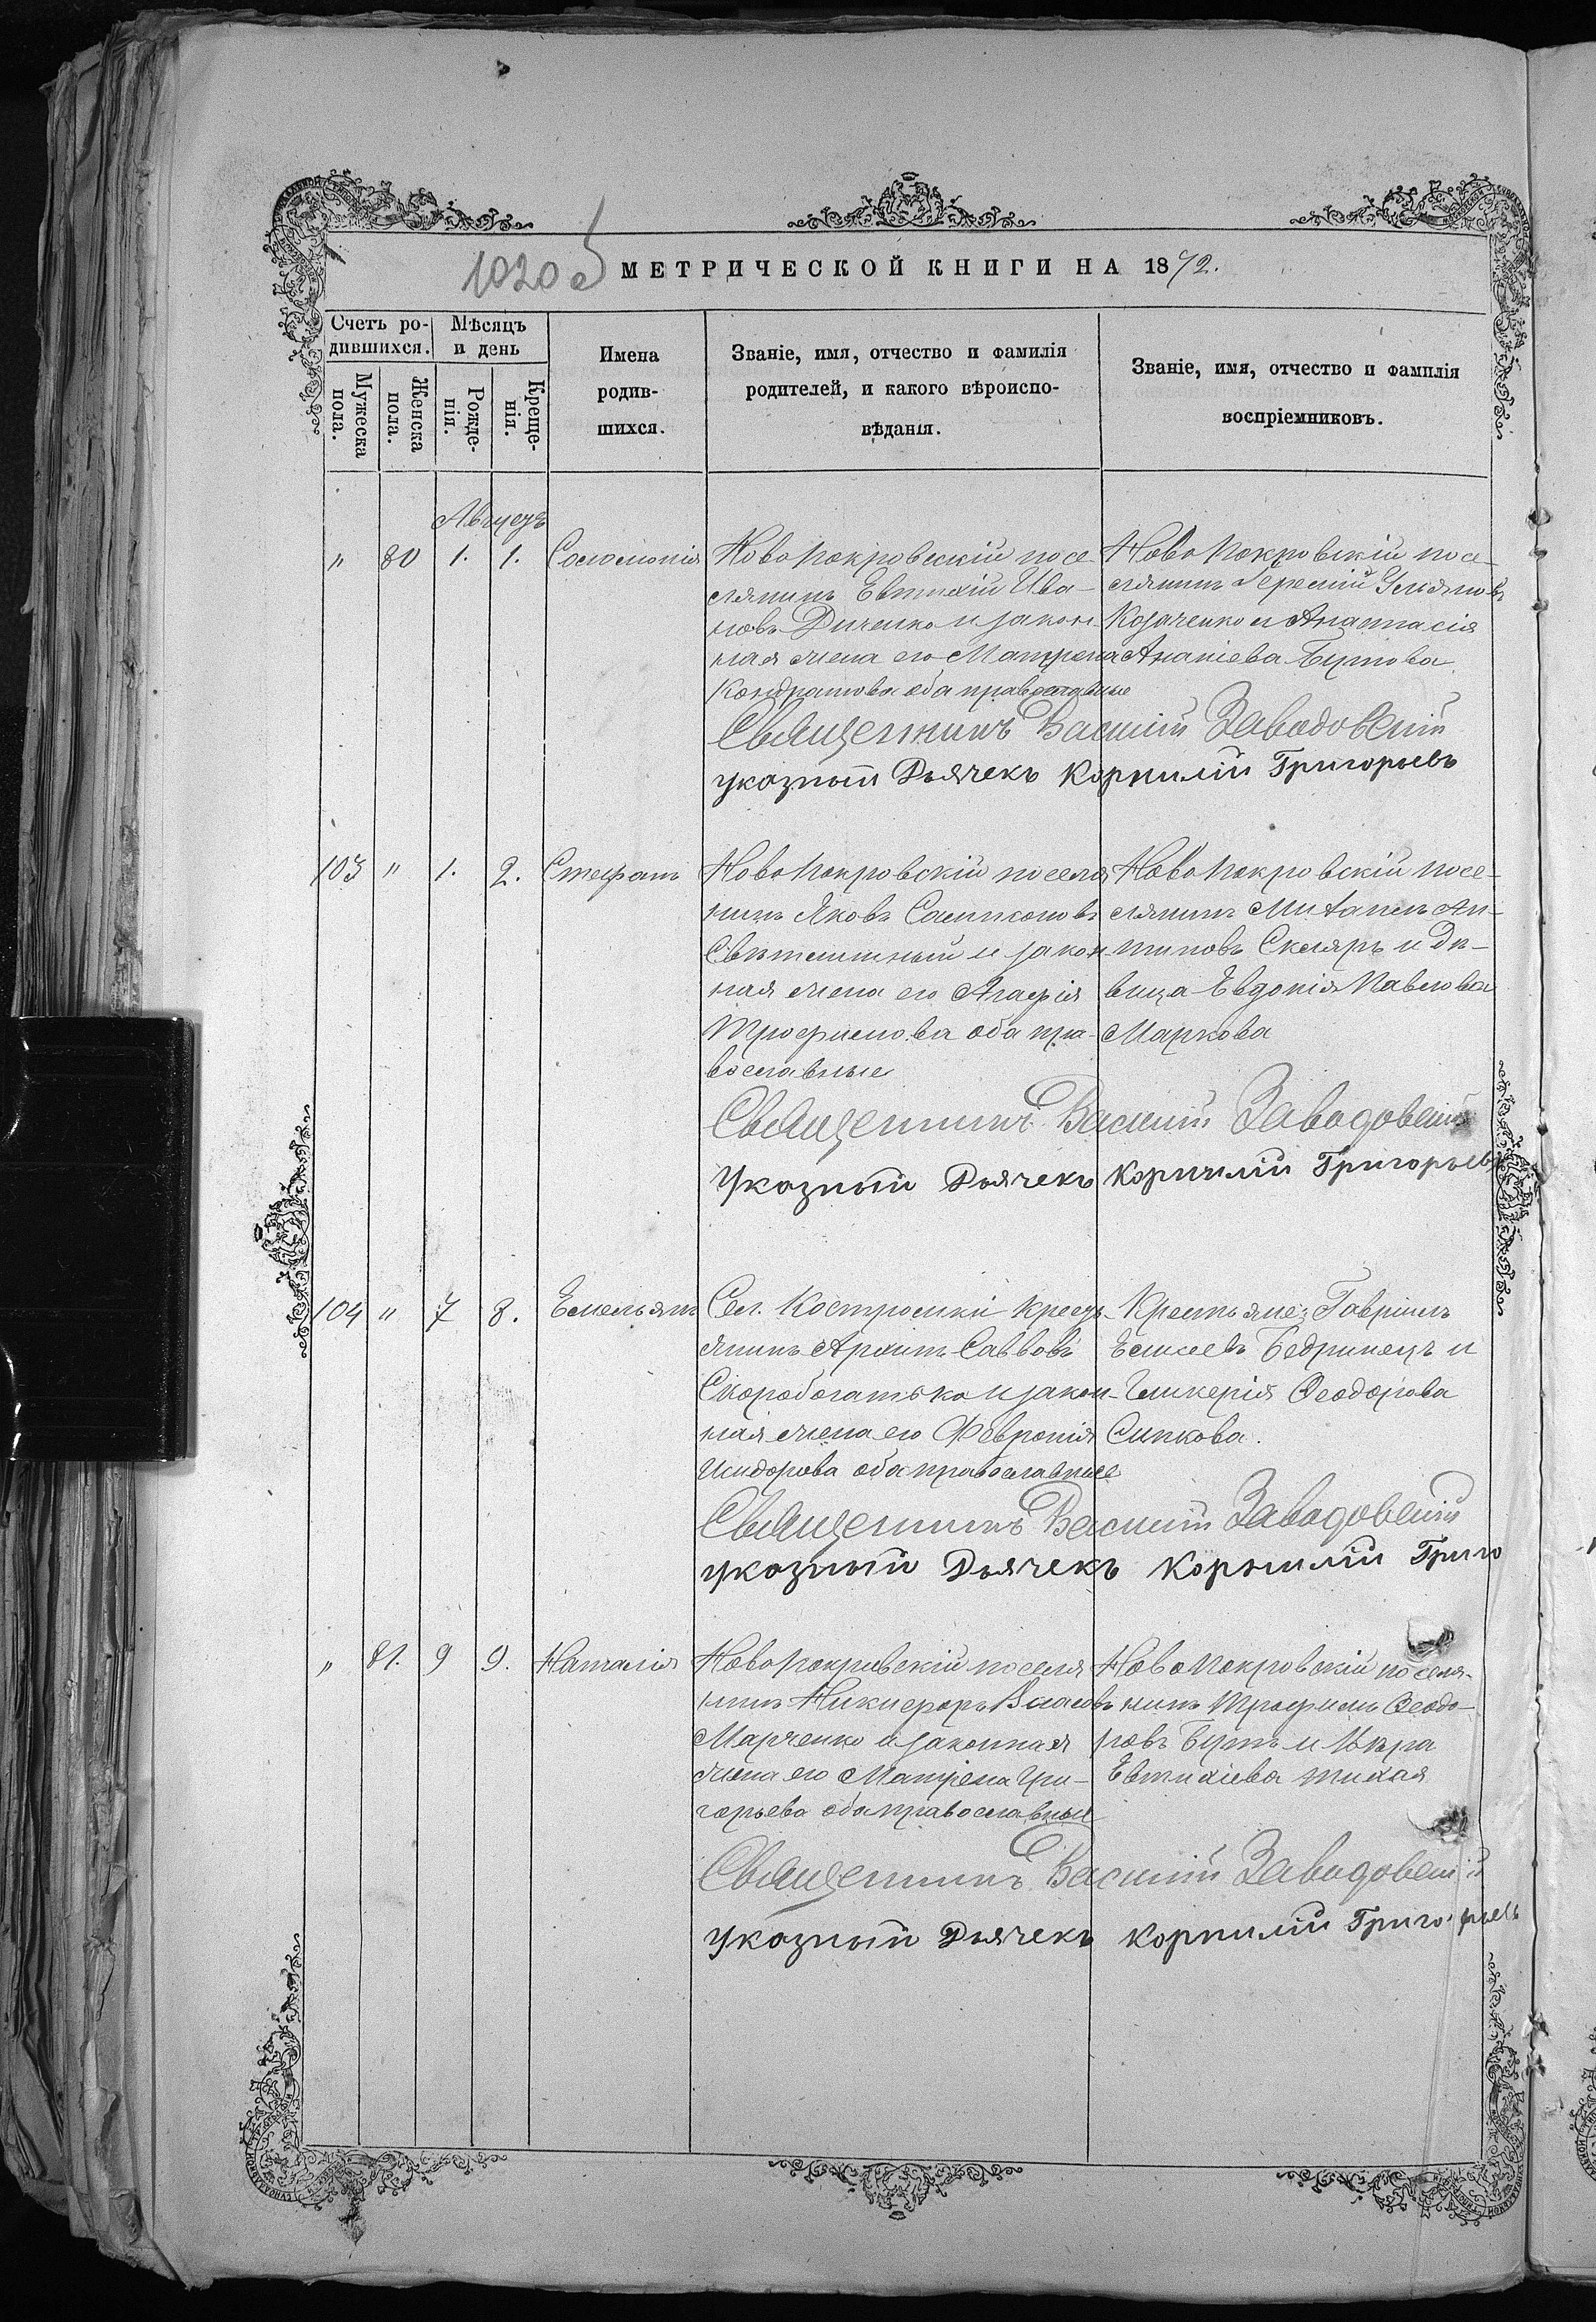 1020 об
МЕТРИЧЕСКОЙ КНИГИ НА 1872.
Счетъ ро-
дившихся.
Мѣсяцъ
и день
Мужеска
пола.
Женска
пола.
Рожде-
нія.
Креще-
нія.
Имена
родив-
шихся.
Званіе, имя, отчество и фамилія
родителей, и какого вѣроиспо-
вѣданія.
Званіе, имя, отчество и фамилія
воспріемниковъ.
Августъ
" 80 1. 1. Соломонія
Новопокровскій посе-
лянинъ Евтихій Ива-
новъ Диченко и закон-
ная жена его Матрена
Кондратова оба православные
Новопокровскій посе-
лянинъ Ульяновъ
Козаченко и Анастасія
Ананіева Бутова
Священникъ Василій Заводовскій
указный Дьячекъ Корнилій Григорьевъ
103 " 1. 2. Стефанъ
Новопокровскій поселя
нинъ Яковъ Самсоновъ
Свѣтличный и закон-
ная жена его Агафія
Трофимова оба пра-
вославные
Новопокровскій посе-
лянинъ Михаилъ Ан-
типовъ Скляръ и дѣ-
вица Евдокія Павлова
Маркова
Священникъ Василій Заводовскій
Указный Дьячекъ Корнилій Григорьевъ
104 " 7 8. Емельянъ
Сел. Костромки крест-
янинъ Архипъ Саввовъ
Скоробогатько и закон-
ная жена его Февронія
Исидорова оба православные
Крестьяне: Гавріилъ
Елисеевъ Бедринецъ и
Гликерія Феодорова
Сипкова.
Священникъ Василій Заводовскій
указный Дьячекъ Корнилій Григо
" 81. 9 9. Наталія
Новопокровскій поселя
нинъ Никифоръ Власовъ
Марченко и законная
жена его Матрена Гри-
горьева оба православные
Новопокровскій поселя-
нинъ Трофимъ Феодо-
ровъ Бутъ и Вѣра
Евтихіева тихая
Священникъ Василій Заводовскій
указный Дьячекъ Корнилій Григорьевъ